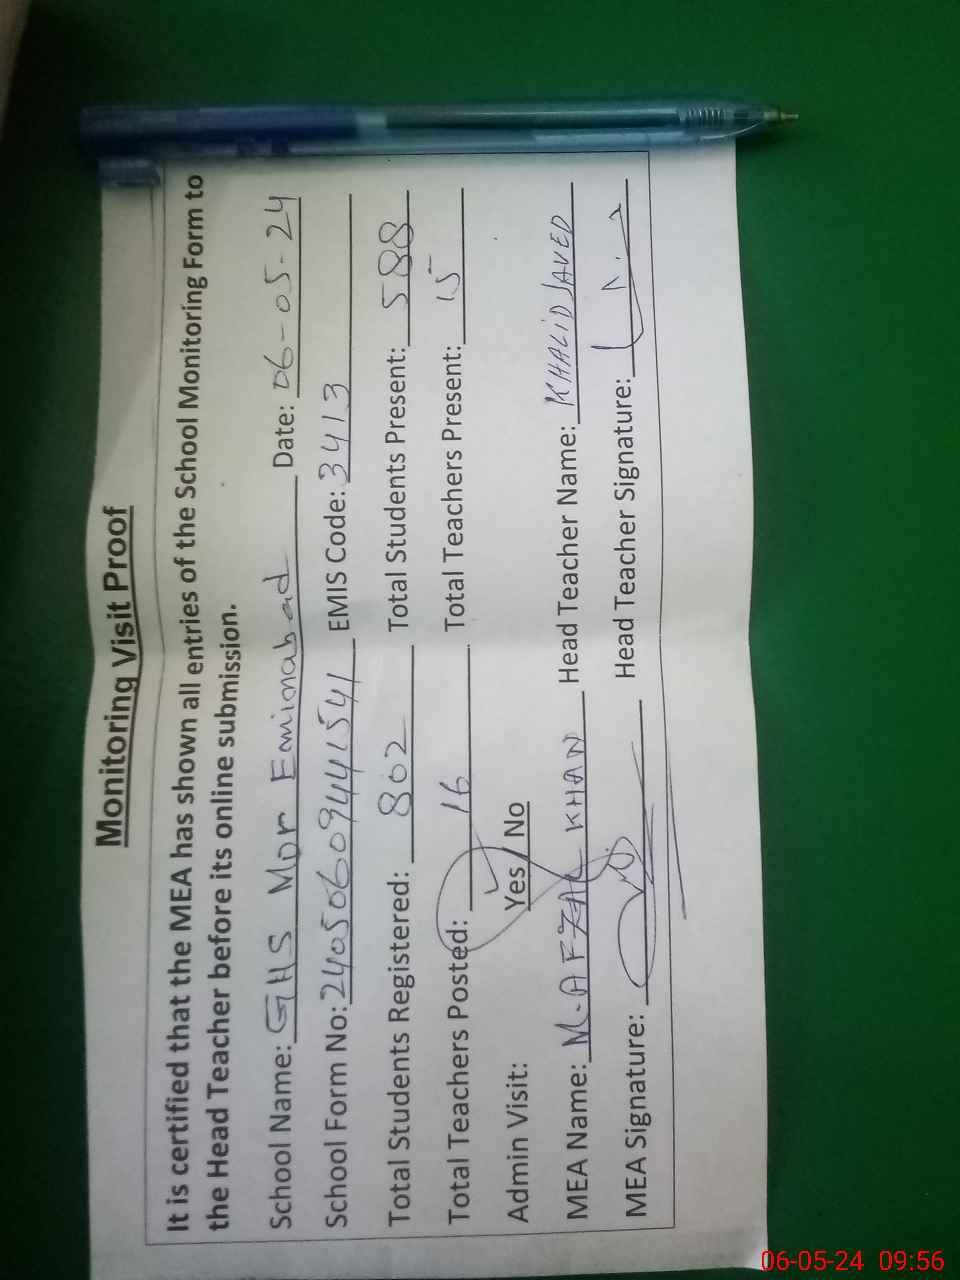 Monitoring Visit Proof
It is certified that the MEA has shown all entries of the School Monitoring Form to
the Head Teacher before its online submission.
School Name: GHS Mor Eminabad Date: 06-05-24
School Form No: 240506094441541 EMIS Code: 3413
Total Students Registered: 802 Total Students Present: 588
Total Teachers Posted: 16 Total Teachers Present: 15
Admin Visit: Yes / No
MEA Name: M. AFZAL KHAN Head Teacher Name: KHALID JAVED
MEA Signature: Head Teacher Signature:
06-05-24 09:56